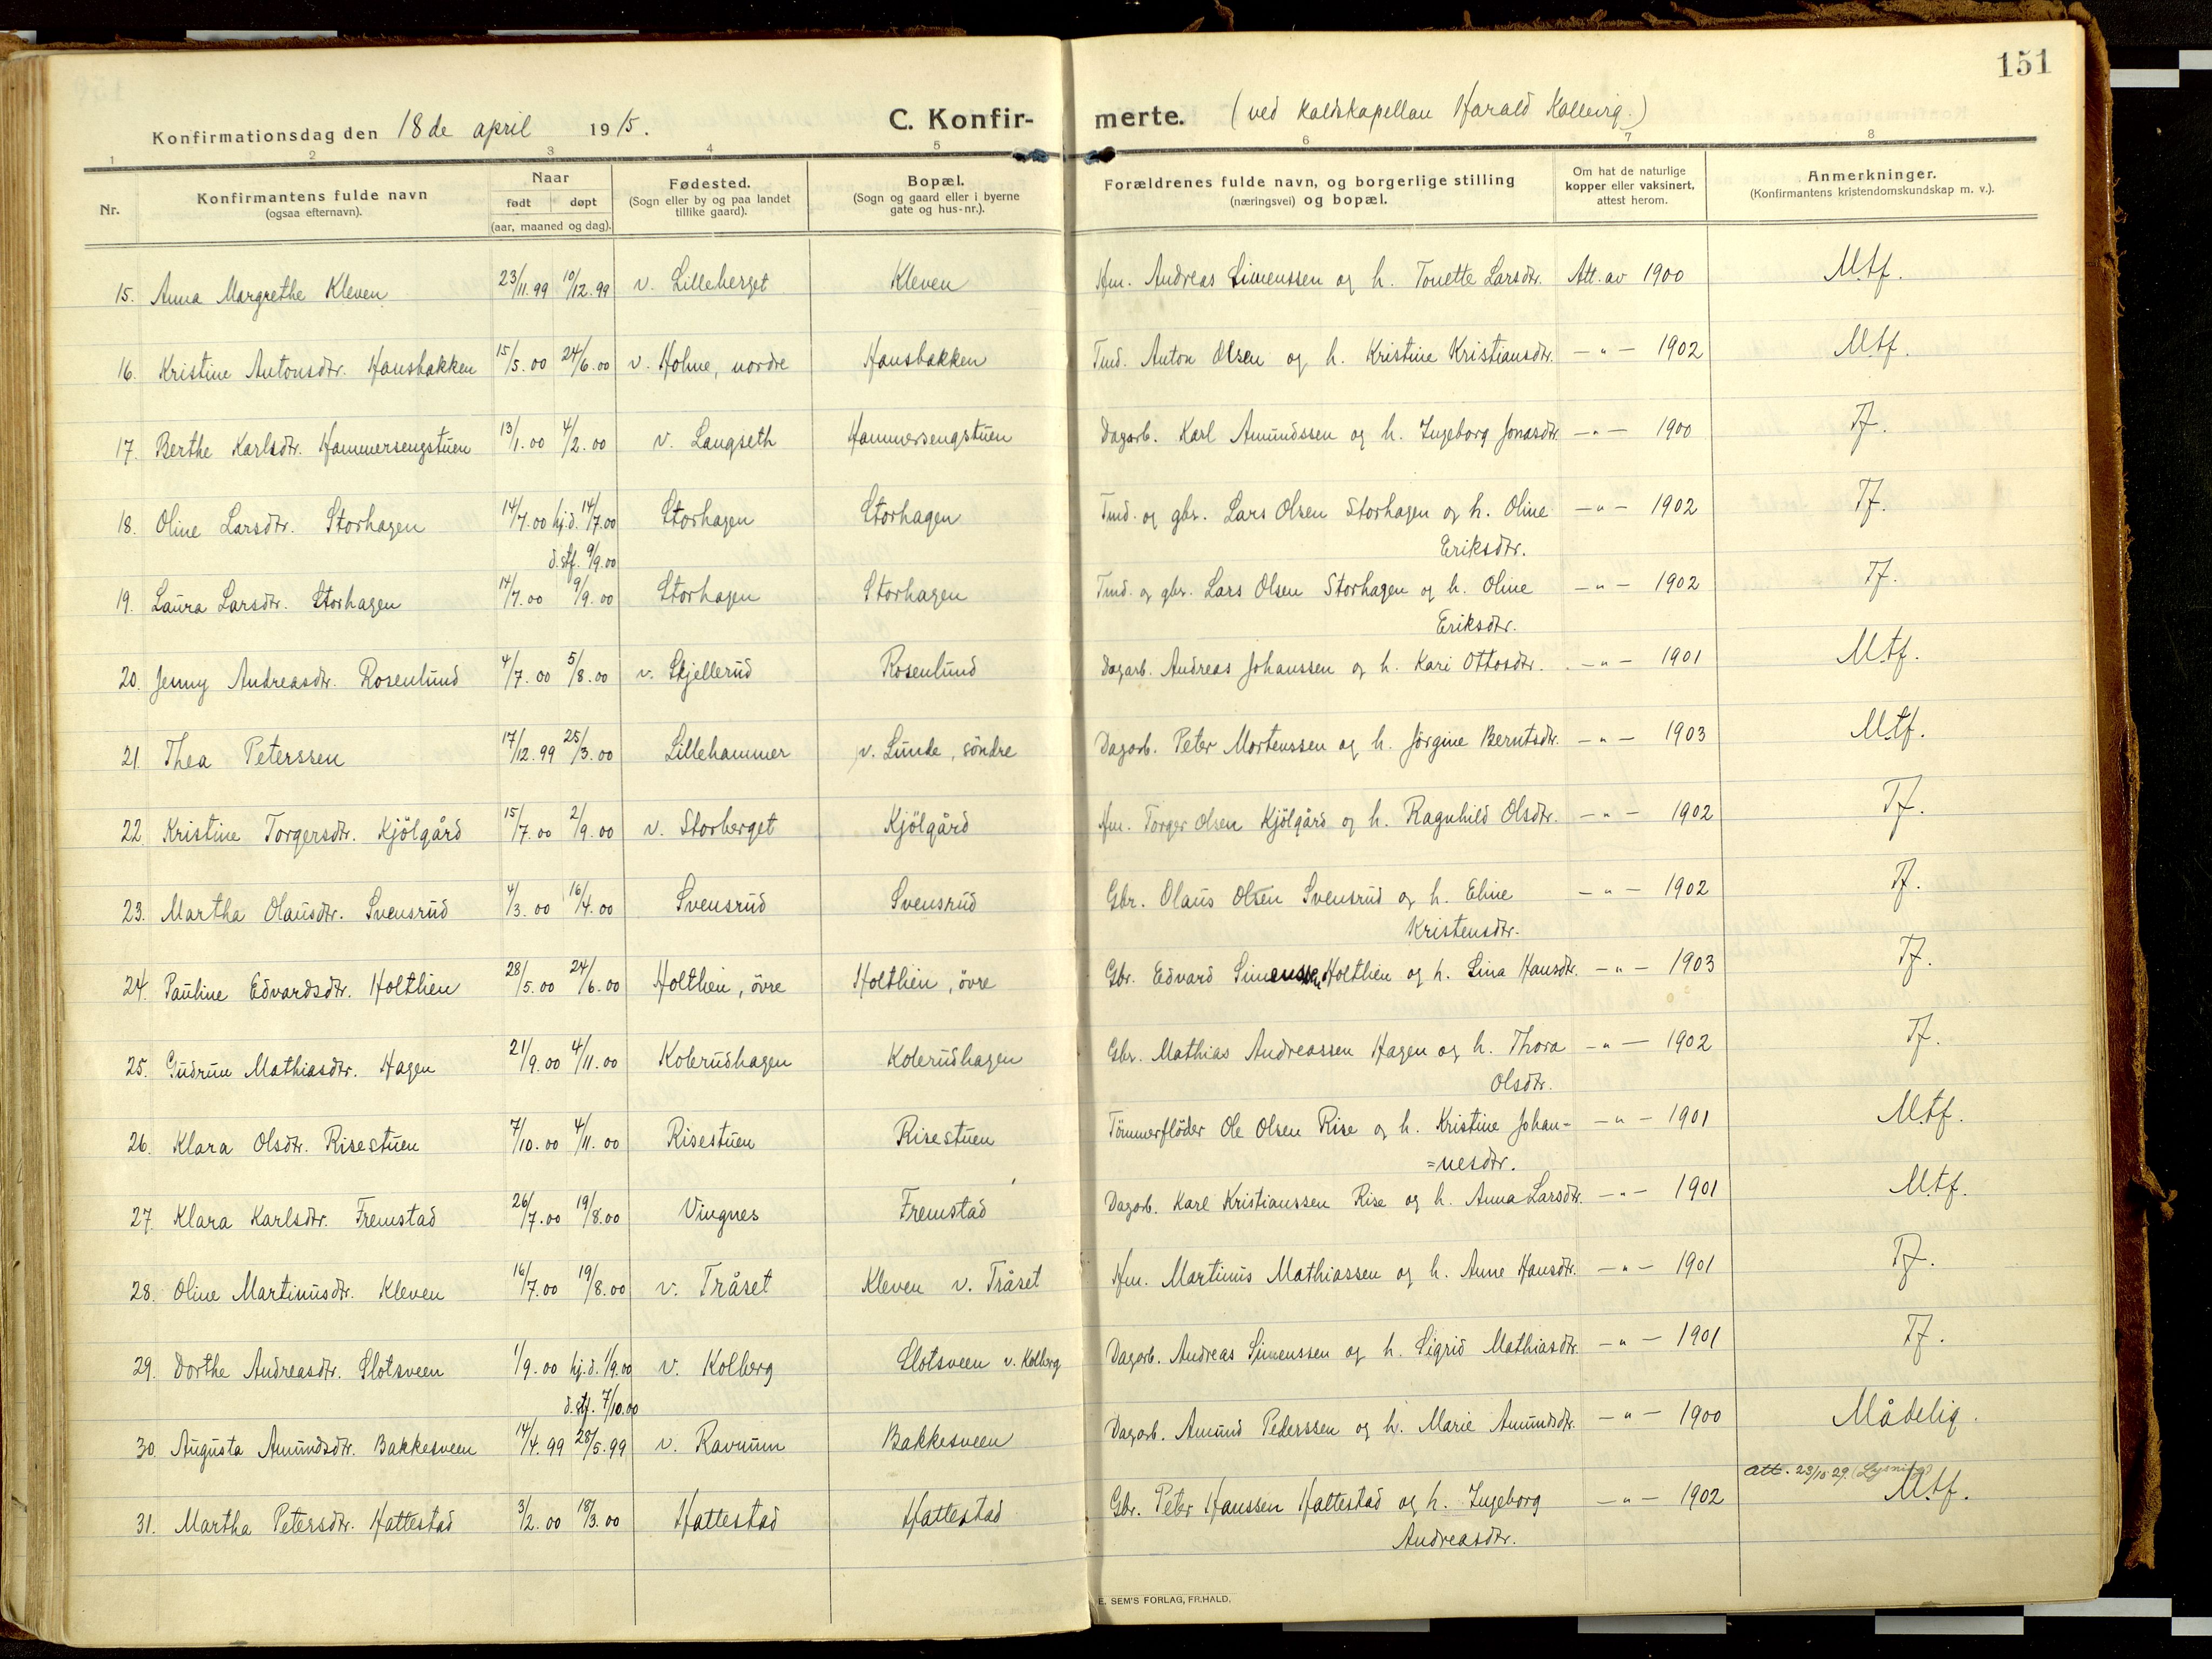 151
Konfirmationsdag den 18de april 1915. C. Konfirmerte. (ved kaldskapellan Harald Kallevig.)
1 2 3 4 5 6 7 8
Nr. Konfirmantens fulde navn (ogsaa efternavn). Naar født døpt (aar, maaned og dag). Fødested. (Sogn eller by og paa landet tillike gaard). Bopæl. (Sogn og gaard eller i byerne gate og hus-nr.). Forældrenes fulde navn, og borgerlige stilling (næringsvei) og bopæl. Om hat de naturlige kopper eller vaksinert, attest herom. Anmerkninger. (Konfirmantens kristendomskundskap m. v.).
15. Anna Margrethe Kleven 23/11.99 10/12.99 v. Lilleberget Kleven Hm. Andreas Simenssen og h. Tonette Larsdtr. Att. av 1900 Mtf.
16. Kristine Antonsdtr. Hansbakken 15/5.00 24/6.00 v. Holme, nordre Hansbakken Tmd. Anton Olsen og h. Kristine Kristiansdtr. —"— 1902 Mtf.
17. Berthe Karlsdtr. Hammersengstuen 13/1.00 4/2.00 v. Langseth Hammersengstuen Dagarb. Karl Amundssen og h. Ingeborg Jonasdtr. —"— 1900 Tf.
18. Oline Larsdtr. Storhagen 14/7.00 hj.d. 14/7.00 Storhagen Storhagen Tmd. og gbr. Lars Olsen Storhagen og h. Oline —"— 1902 Tf.
d. stf. 9/9.00 Eriksdtr.
19. Laura Larsdtr. Storhagen 14/7.00 9/9.00 Storhagen Storhagen Tmd. og gbr. Lars Olsen Storhagen og h. Oline —"— 1902 Tf.
Eriksdtr.
20. Jenny Andreasdtr. Rosenlund 4/7.00 5/8.00 v. Skjellerud Rosenlund Dagarb. Andreas Johanssen og h. Kari Ottosdtr. —"— 1901 Mtf.
21. Thea Peterssen 17/12.99 25/3.00 Lillehammer v. Lunde, söndre Dagarb. Peter Mortenssen og h. Jörgine Berntsdtr. —"— 1903 Mtf.
22. Kristine Torgersdtr. Kjölgård 15/7.00 2/9.00 v. Storberget Kjölgård Hm. Torger Olsen Kjölgård og h. Ragnhild Olsdtr. —"— 1902 Tf.
23. Martha Olausdtr. Svensrud 4/3.00 16/4.00 Svensrud Svensrud Gbr. Olaus Olsen Svensrud og h. Eline —"— 1902 Tf.
Kristensdtr.
24. Pauline Edvardsdtr. Holthien 28/5.00 24/6.00 Holthien, övre Holthien, övre Gbr. Edvard Simenssen Holthien og h. Lina Hansdtr. —"— 1903 Tf.
25. Gudrun Mathiasdtr. Hagen 21/9.00 4/11.00 Kolerudhagen Kolerudhagen Gbr. Mathias Andreassen Hagen og h. Thora —"— 1902 Tf.
Olsdtr.
26. Klara Olsdtr. Risestuen 7/10.00 4/11.00 Risestuen Risestuen Tömmerflöder Ole Olsen Rise og h. Kristine Johan- —"— 1901 Mtf.
=nesdtr.
27. Klara Karlsdtr. Fremstad 26/7.00 19/8.00 Vingnes Fremstad Dagarb. Karl Kristianssen Rise og h. Anna Larsdtr. —"— 1901 Mtf.
28. Oline Martinusdtr. Kleven 16/7.00 19/8.00 v. Tråset Kleven v. Tråset Hm. Martinus Mathiassen og h. Anne Hansdtr. —"— 1901 Tf.
29. Dorthe Andreasdtr. Slotsveen 1/9.00 hj.d. 1/9.00 v. Kolberg Slotsveen v. Kolberg Dagarb. Andreas Simenssen og h. Sigrid Mathiasdtr. —"— 1901 Tf.
d. stf. 7/10.00
30. Augusta Amundsdtr. Bakkesveen 14/4.99 28/5.99 v. Ravnum Bakkesveen Dagarb. Amund Pederssen og h. Marie Amundsdtr. —"— 1900 Mådelig.
att. 23/10 29. (Lysning)
31. Martha Petersdtr. Hattestad 3/2.00 18/3.00 Hattestad Hattestad Gbr. Peter Hanssen Hattestad og h. Ingeborg —"— 1902 Mtf.
Andreasdtr.
E. SEM'S FORLAG, FR.HALD.